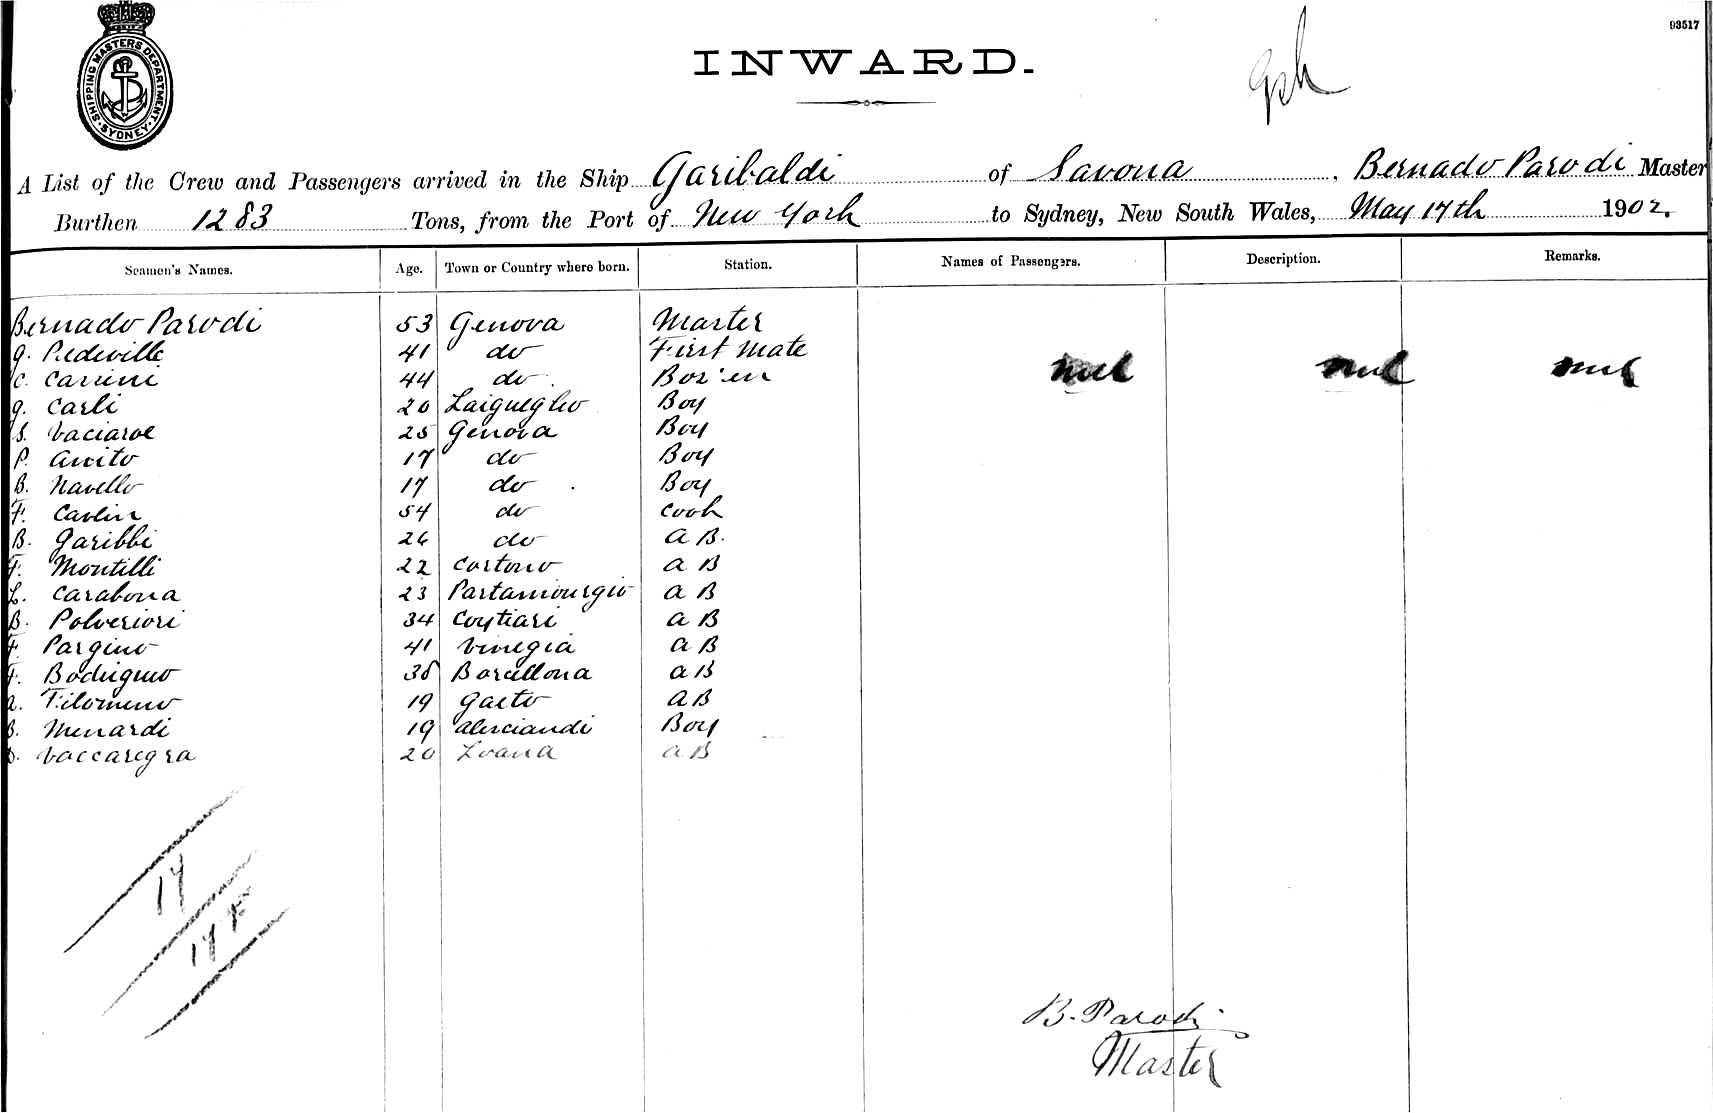 SHIPPING MASTERS DEPARTMENT. SYDNEY.
93517
INWARD.
A List of the Crew and Passengers arrived in the Ship Garibaldi of Savona, Bernado Parodi Master
Burthen 1283 Tons, from the Port of New York to Sydney, New South Wales, May 17th 1902.
Seamen's Names. Age. Town or Country where born. Station. Names of Passengers. Description. Remarks.
Bernado Parodi 53 Genova Master
G. Pedeville 41 do First Mate
C. Carini 44 do Bos'en
nil nil nil
G. Carli 20 Laigueglio Boy
S. Vaciaroe 25 Genova Boy
P. Anito 17 do Boy
B. Navello 17 do Boy
F. 54 do Cook
B. Garibbi 26 do A B.
F. Montilli 22 Cortono A B
L. Carabona 23 A B
B. Polveriori 34 A B
F. Pargino 41 Vinegia A B
F. 38 Barcellona A B
A. Filomeno 19 Gaeto A B
B. Menardi 19 Boy
D. Vaccaregra 20 Loana A B
17
17 F
B. Parodi
Master